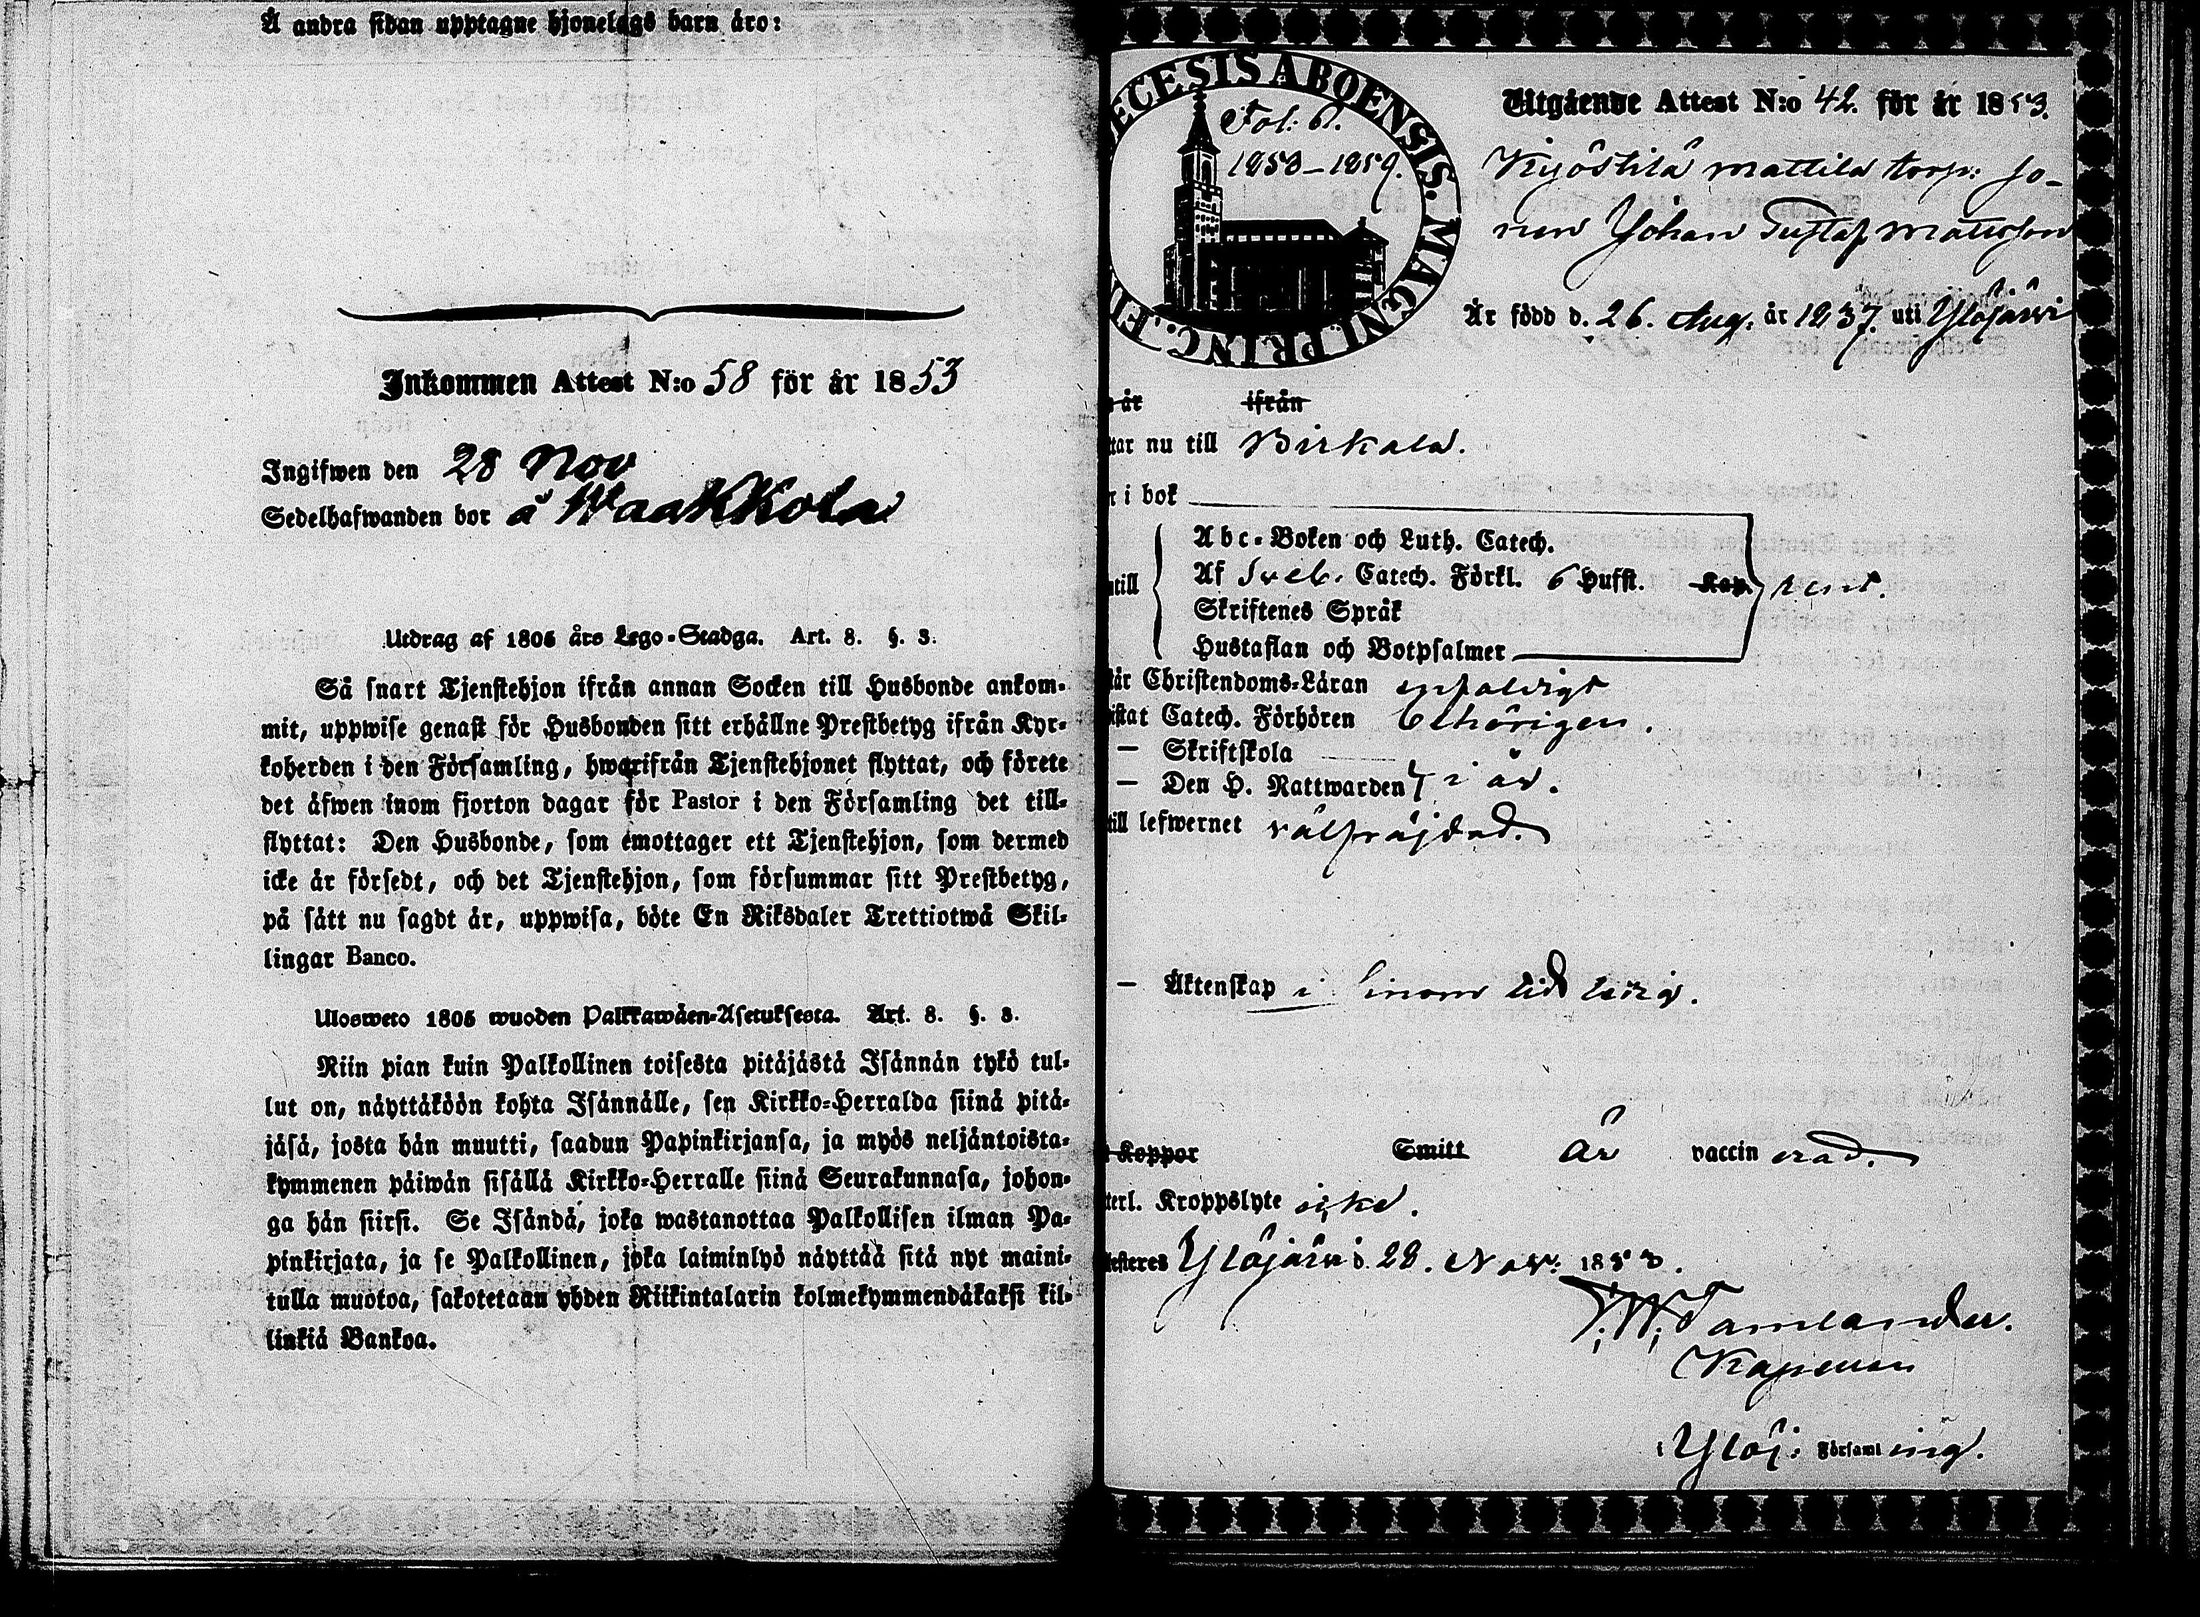 Å andra sidan upptagne hjonelags barn äro:
Inkommen Attest N:o 58 för år 1853
Ingifwen den 28 Nov
Sedelhafwanden bor å Waakkola
Utdrag af 1805 års Lego-Stadga. Art. 8. §. 3.
Så snart Tjenstehjon ifrån annan Socken till Husbonde ankom-
mit, uppwise genast för Husbonden sitt erhållne Prestbetyg ifrån Kyr-
koherden i den Församling, hwarifrån Tjenstehjonet flyttat, och förete
det äfwen inom fjorton dagar för Pastor i den Församling det till-
flyttat: Den Husbonde, som emottager ett Tjenstehjon, som dermed
icke är försedt, och det Tjenstehjon, som försummar sitt Prestbetyg,
på sätt nu sagdt är, uppwisa, böte En Riksdaler Trettiotwå Skil-
lingar Banco.
Ulosweto 1805 wuoden Palkkawäen-Asetuksesta. Art. 8. §. 3.
Niin pian kuin Palkollinen toisesta pitäjästä Isännän tykö tul-
lut on, näyttäköön kohta Isännälle, sen Kirkko-Herralda siinä pitä-
jäsä, josta hän muutti, saadun Papinkirjansa, ja myös neljäntoista-
kymmenen päiwän sisällä Kirkko-Herralle siinä Seurakunnasa, johon-
ga hän siirsi. Se Isändä, joka wastanottaa Palkollisen ilman Pa-
pinkirjata, ja se Palkollinen, joka laiminlyö näyttää sitä nyt maini-
tulla muotoa, sakotetaan yhden Riikintalarin kolmekymmendäkaksi kil-
linkiä Bankoa.
ECESIS ABOENSIS. MAGNI. PRINC. FI
Fol: 61.
1853-1859.
Utgående Attest N:o 42. för år 1853.
Kyöstilä Mattila torp: so-
nen Johan Gustaf Mattsson
Är född d. 26. Aug. år 1837. uti Ylöjärvi
år ifrån
tar nu till Birkala.
r i bok
Abc-Boken och Luth. Catech.
till Af Sveb. Catech. Förkl. 6 Hufst. Kap. rent.
Skriftenes Språk
Hustaflan och Botpsalmer
tår Christendoms-Läran enfaldigt
istat Catech. Förhören behörigen.
— Skriftskola
— Den H. Nattwarden i år.
till lefwernet välfräjdad.
— Äktenskap i sinom tid ledig.
Koppor Smitt Är vaccinerad.
terl. Kroppslyte icke.
testeres Ylöjärvi d. 28. Nov: 1853.
Tamlander.
Kapellan
i Ylöj: Församling.